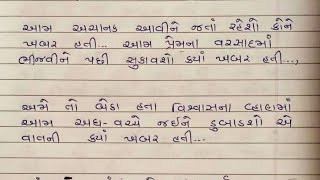 આમ અચાનક આવીને જતાં રહેશો કોને
ખબર હતી... આમ પ્રેમના વરસાદમાં
ભીંજવીને પછી સુકાવશો ક્યાં ખબર હતી...,
અમે તો બેઠા હતા વિશ્વાસના વ્હાણમાં
આમ અધ-વચ્ચે જઈને ડુબાડશો એ
વાતની ક્યાં ખબર હતી...